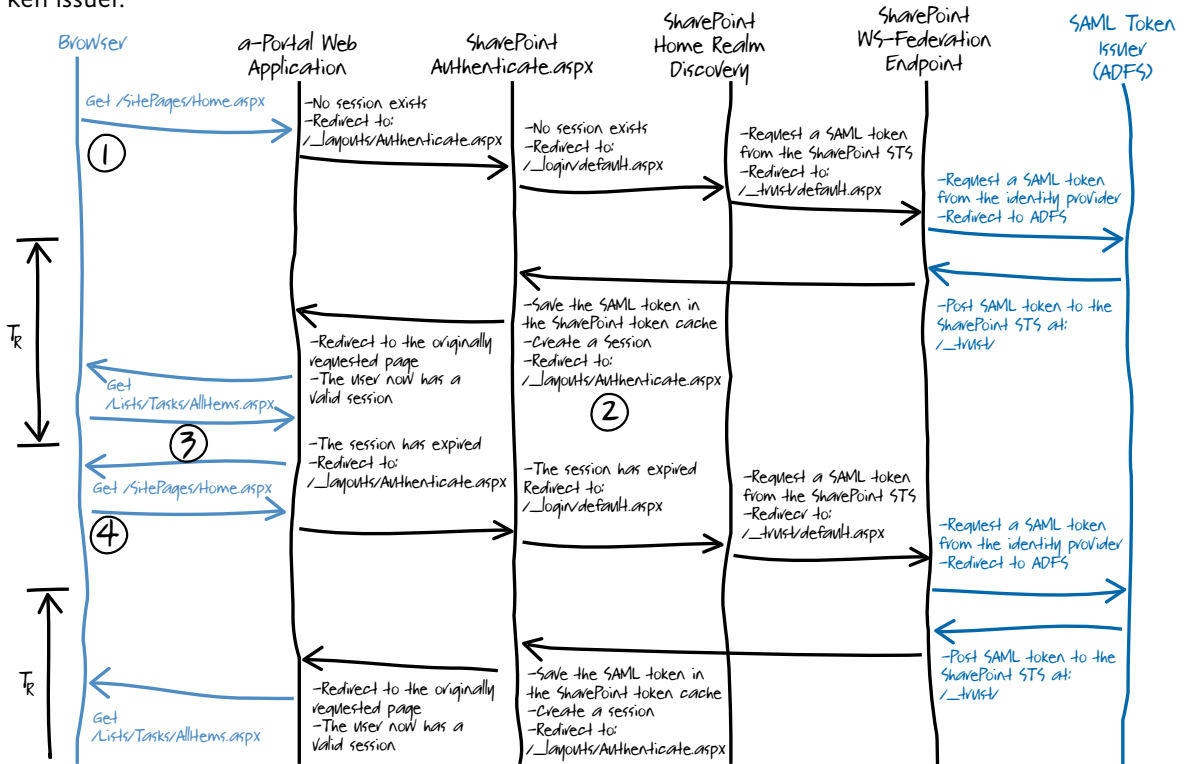 ken issuer.
Browser
a-Portal Web
Application
SharePoint
Authenticate.aspx
SharePoint
Home Realm
Discovery
SharePoint
WS-Federation
Endpoint
SAML Token
Issuer
(ADFS)
Get /SitePages/Home.aspx
1
-No session exists
-Redirect to:
/_layouts/Authenticate.aspx
-No session exists
-Redirect to:
/_login/default.aspx
-Request a SAML token
from the SharePoint STS
-Redirect to:
/_trust/default.aspx
-Request a SAML token
from the identity provider
-Redirect to ADFS
TR
-Post SAML token to the
SharePoint STS at:
/_trust/
-Save the SAML token in
the SharePoint token cache
-Create a Session
-Redirect to:
/_layouts/Authenticate.aspx
2
-Redirect to the originally
requested page
-The user now has a
valid session
Get
/Lists/Tasks/AllItems.aspx
3
-The session has expired
-Redirect to:
/_layouts/Authenticate.aspx
Get /SitePages/Home.aspx
4
-The session has expired
Redirect to:
/_login/default.aspx
-Request a SAML token
from the SharePoint STS
-Redirecr to:
/_trust/default.aspx
-Request a SAML token
from the identity provider
-Redirect to ADFS
TR
-Post SAML token to the
SharePoint STS at:
/_trust/
-Save the SAML token in
the SharePoint token cache
-Create a session
-Redirect to:
/_layouts/Authenticate.aspx
-Redirect to the originally
requested page
-The user now has a
valid session
Get
/Lists/Tasks/AllItems.aspx